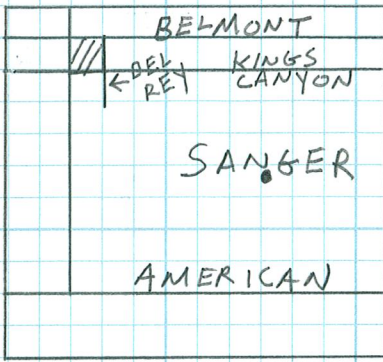 BELMONT
← DEL REY
KINGS CANYON
SANGER
AMERICAN